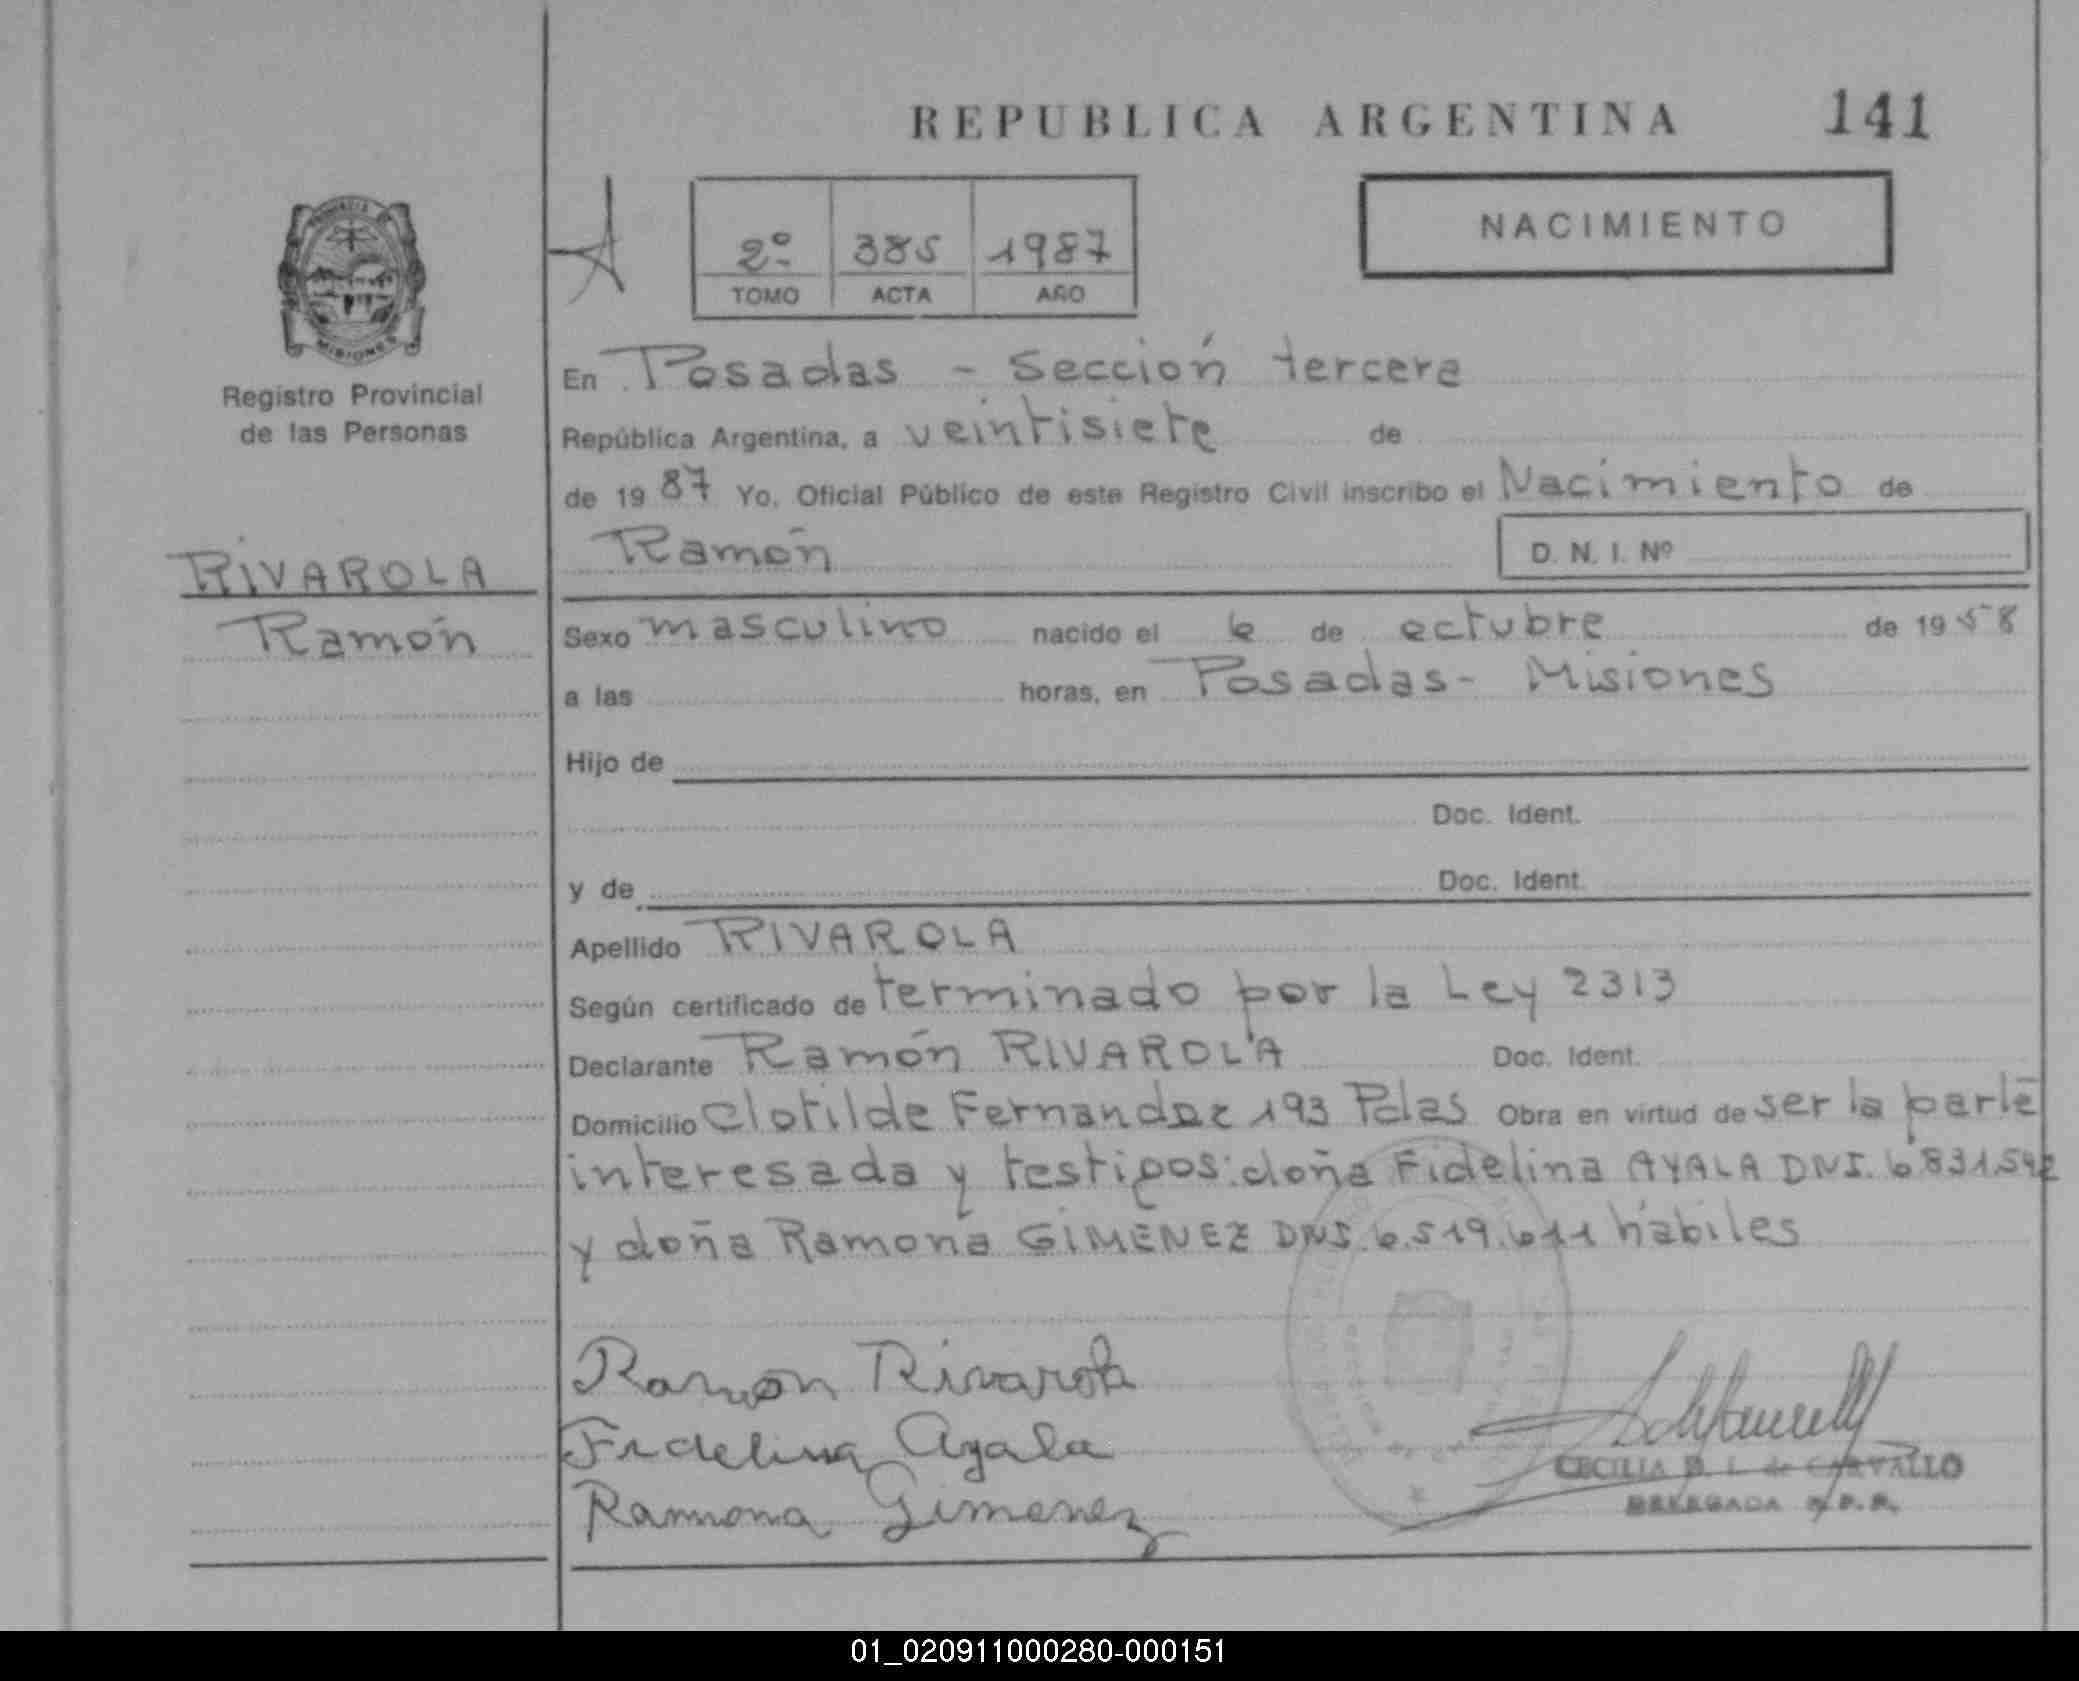 REPUBLICA ARGENTINA 141
NACIMIENTO
2º 385 1987
TOMO ACTA AÑO
PROVINCIA DE
MISIONES
Registro Provincial
de las Personas
En Posadas - Sección tercera
República Argentina, a veintisiete de
de 1987 Yo, Oficial Público de este Registro Civil inscribo el Nacimiento de
Ramón D. N. I. Nº
RIVAROLA
Ramón
Sexo masculino nacido el 6 de octubre de 1958
a las horas, en Posadas - Misiones
Hijo de
Doc. Ident.
y de Doc. Ident.
Apellido RIVAROLA
Según certificado de terminado por la Ley 2313
Declarante Ramón RIVAROLA Doc. Ident.
Domicilio Clotilde Fernandez 193 Pdas Obra en virtud de ser la parte
interesada y testigos: doña Fidelina AYALA DNI. 6.831.542
y doña Ramona GIMENEZ DNI. 6.519.611 hábiles
Ramón Rivarola
Fidelina Ayala
Ramona Gimenez
CECILIA de CARVALLO
DELEGADA R.P.P.
01_020911000280-000151